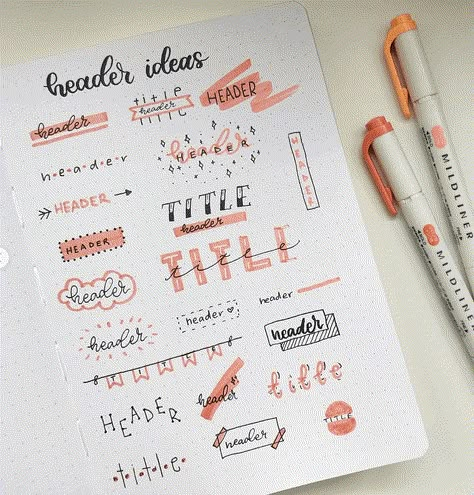 header ideas
header
title
header
HEADER
h·e·a·d·e·r
header
HEADER
HEADER
HEADER
TITLE
header
HEADER
TITLE
title
header
header
header
header
header
HEADER
header
title
TITLE
title
header
MILDLINER
MILDLINER